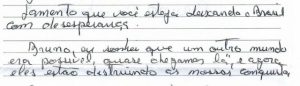 Lamento que você esteja deixando o Brasil
com desesperança.
Bruno, eu sonhei que um outro mundo
era possível, quase chegamos lá, e agora
eles estão destruindo as nossas conquistas,